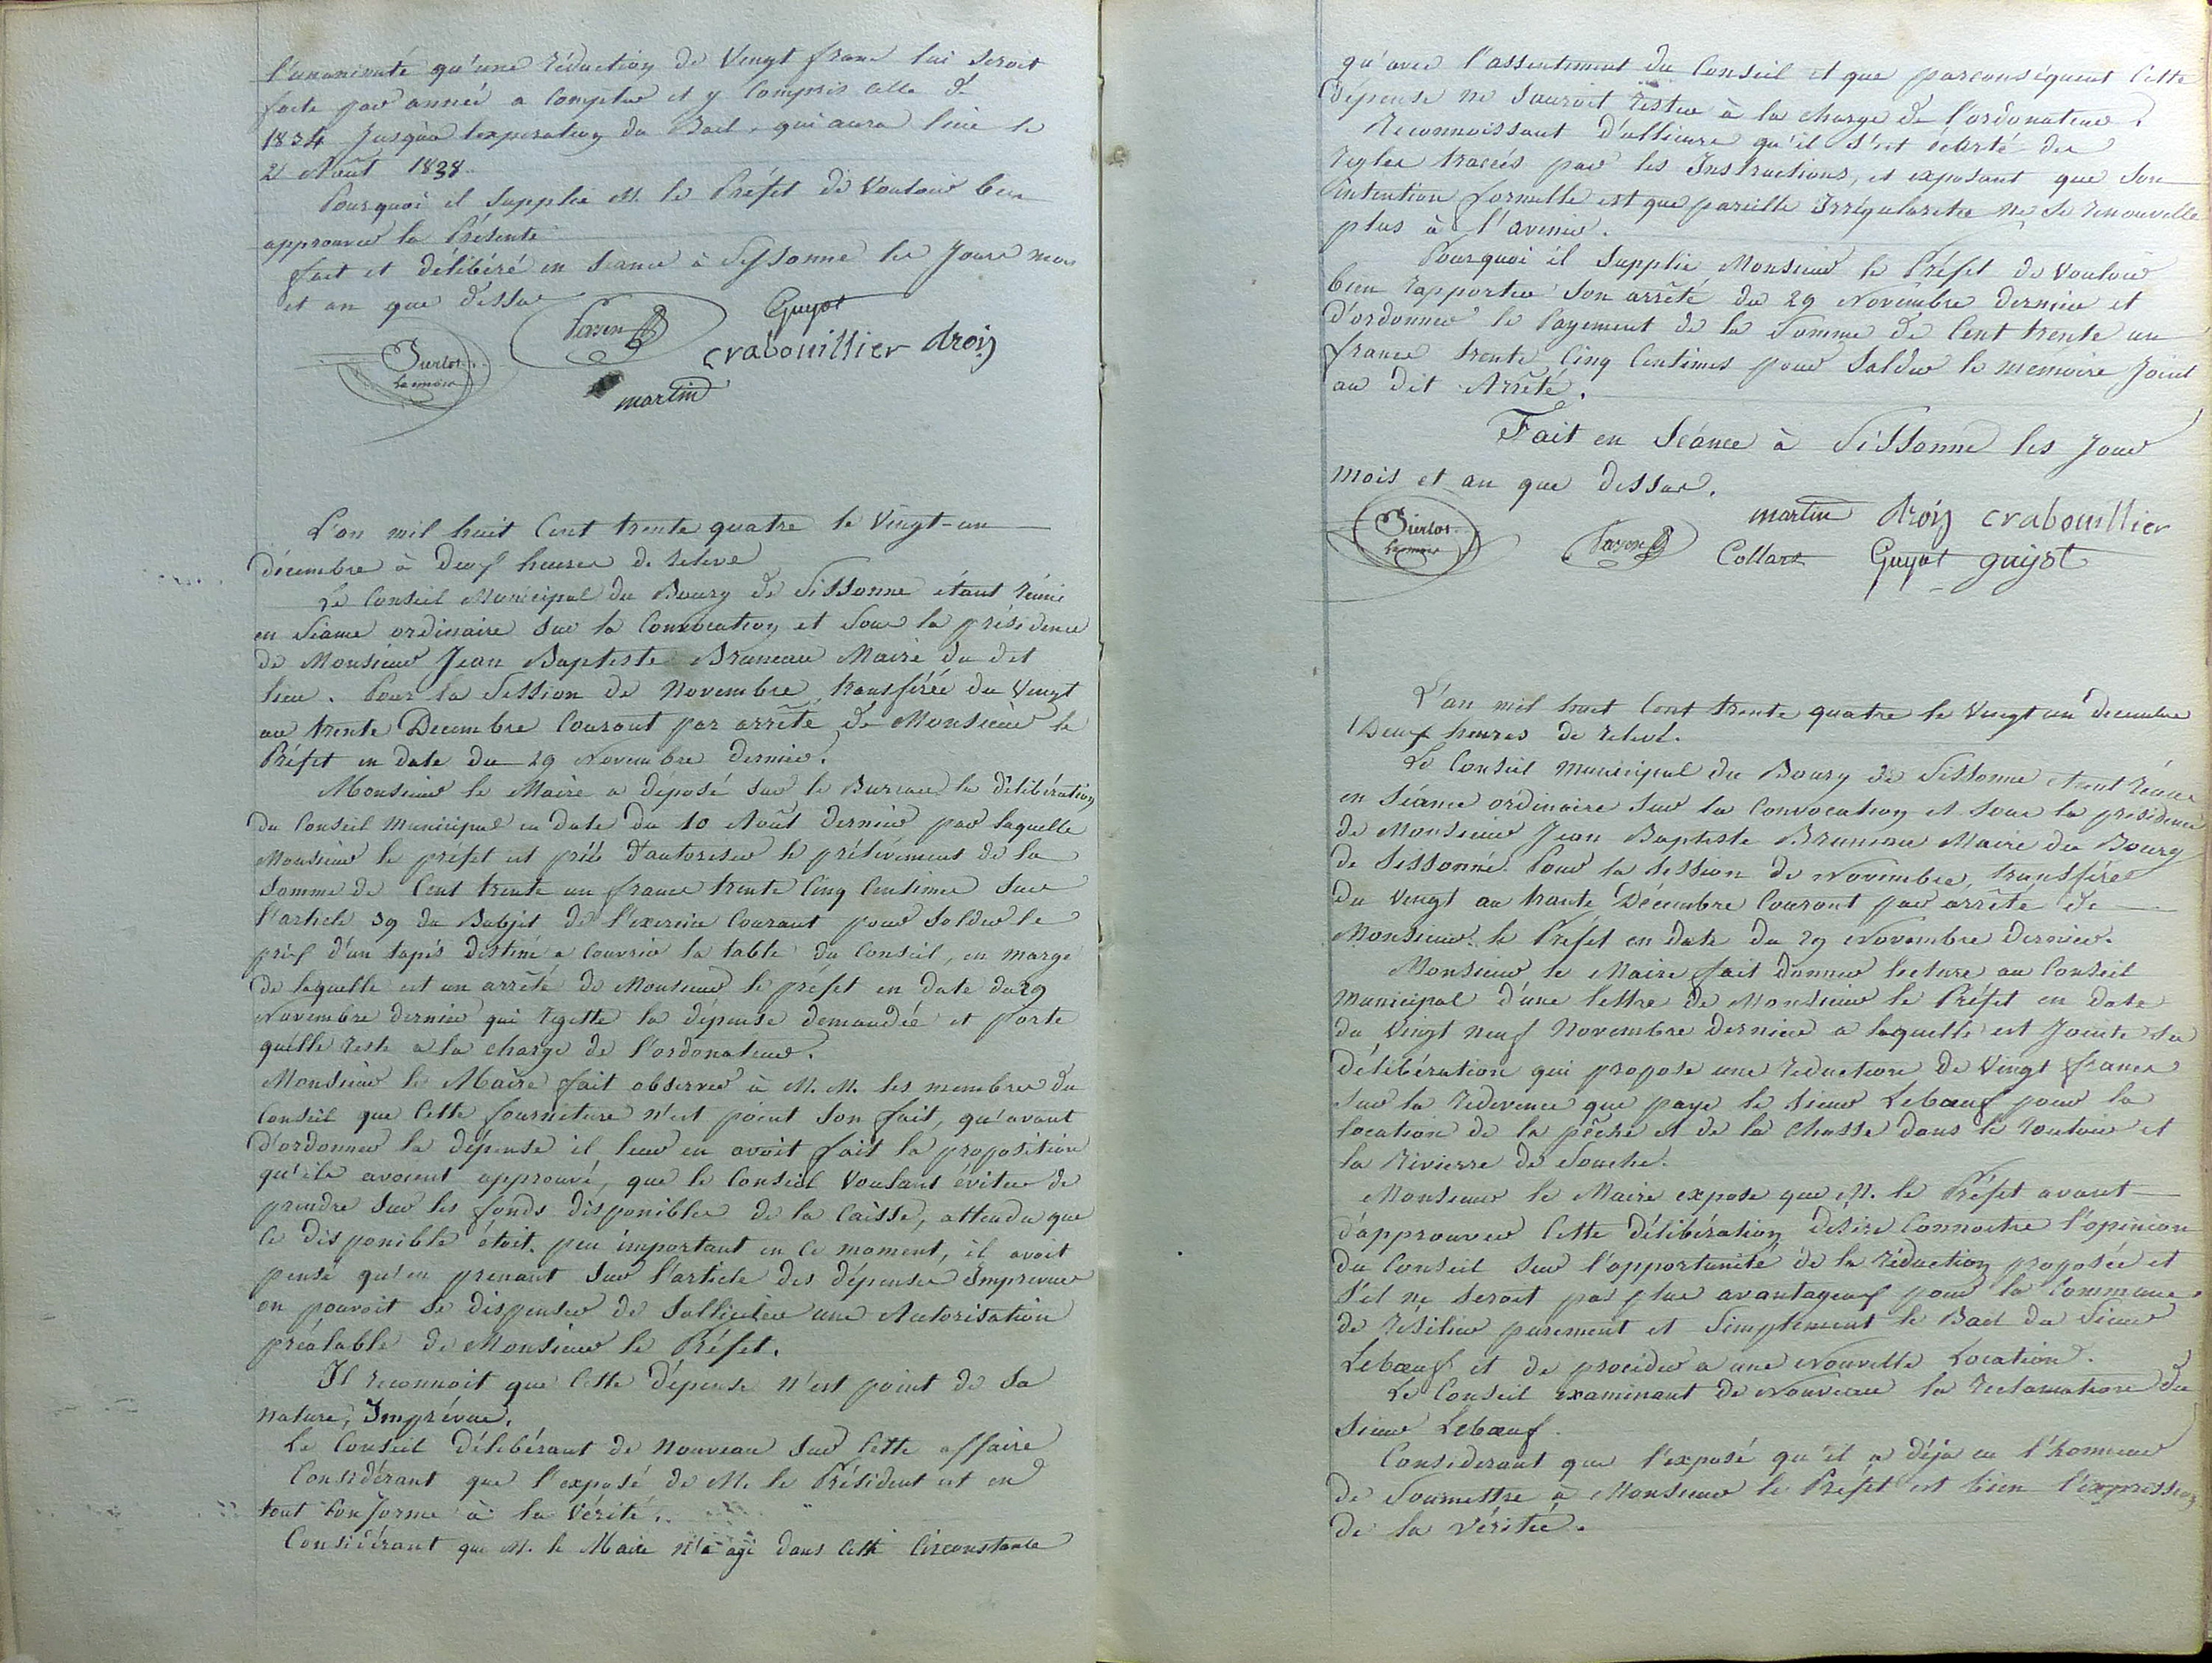 l'unanimité qu'une réduction de Vingt franc lui seroit
faite par année a compter et y compris celle de
1834 Jusqu'a l'expiration du Bail, qui aura lieu le
21 Août 1838.
Pourquoi il Supplie M. le Préfet de Vouloir bien
approuver la Présente
fait et délibéré en Séance à Sissonne les Jour mois
et an que dessus
Guyot
crabouillier droin
Le maire
martin
L'an mil huit Cent trente quatre le Vingt-un
décembre à Deux heures de relevé
Le Conseil Municipal du Bourg de Sissonne étant réuni
en Séance ordinaire Sur la Convocation et Sous la présidence
de Monsieur Jean Baptiste Bruneau Maire du dit
lieu. Pour la Session de Novembre transférée du Vingt
au trente Decembre Courant par arrêté de Monsieur le
Préfet en date du 29 Novembre dernier.
Monsieur le Maire a déposé sur le Bureau la délibération
du Conseil Municipal en date du 10 Août dernier par laquelle
Monsieur le préfet est prié d'autoriser le prélèvement de la
Somme de Cent trente un francs trente Cinq Centimes Sur
l'article 39 du Budjet de l'exercice Courant pour Solder le
prix d'un tapis destiné a Couvrir la table du Conseil, en marge
de laquelle est un arrêté de Monsieur le préfet en date du 29
Novembre dernier qui rejette la dépense demandée et porte
qu'elle reste a la charge de l'ordonateur.
Monsieur le Maire fait observer à M. M. les membres du
Conseil que Cette fourniture n'est point Son fait, qu'avant
d'ordonner la dépense il leur en avoit fait la proposition
qu'ils avoient approuvé, que le Conseil Voulant éviter de
prendre Sur les fonds disponibles de la Caisse, attendu que
le disponible étoit peu important en Ce moment, il avoit
pensé qu'en prenant Sur l'article des dépenses Imprevues
on pouvoit se dispenser de Solliciter une Autorisation
préalable de Monsieur le Préfet.
Il reconnoit que Cette dépense n'est point de Sa
nature, Imprévue.
Le Conseil délibérant de nouveau Sur Cette affaire
Considérant que l'exposé de M. le Président est en
tout Conforme à la Vérité.
Considérant que M. le Maire n'a agi dans Cette Circonstance
qu'avec l'assentiment du Conseil et que parconséquent Cette
dépense ne Sauroit rester à la charge de l'ordonateur.
Reconnoissant d'ailleurs qu'il s'est écarté des
regles tracées par les Instructions, et exposant que Son
intention formelle est que pareille Irrégularité ne Se renouvelle
plus à l'avenir.
Pourquoi il Supplie Monsieur le Préfet de Vouloir
bien rapporter Son arrêté du 29 Novembre dernier et
d'ordonner le Payement de la Somme de Cent trente un
francs trente Cinq Centimes pour Solder le mémoire Joint
au dit Arrêté.
Fait en Séance à Sissonne les Jour
mois et an que dessus.
martin droin crabouillier
Le maire
Collart Guyot guyot
L'an mil huit Cent trente quatre le Vingt un décembre
Deux heures de relevé.
Le Conseil Municipal du Bourg de Sissonne étant réuni
en Séance ordinaire Sur la Convocation et Sous la présidence
de Monsieur Jean Baptiste Bruneau Maire du Bourg
de Sissonne. Pour la Session de Novembre, transférée
du Vingt au trente Décembre Courant par arrêté de
Monsieur le Préfet en date du 29 Novembre dernier.
Monsieur le Maire fait donner lecture au Conseil
Municipal d'une lettre de Monsieur le Préfet en date
du Vingt neuf Novembre dernier a laquelle est Jointe la
délibération qui propose une réduction de Vingt francs
Sur la redevance que paye le Sieur Leboeuf pour la
location de la pêche et de la chasse dans le routoir et
la rivierre de Souche.
Monsieur le Maire expose que M. le Préfet avant
d'approuver Cette délibération désire Connoitre l'opinion
du Conseil Sur l'opportunité de la réduction proposée et
S'il ne Seroit pas plus avantageux pour la Commune
de résilier purement et Simplement le Bail du Sieur
Leboeuf et de procéder a une Nouvelle Location.
Le Conseil examinant de Nouveau la réclamation du
Sieur Leboeuf.
Considerant que l'exposé qu'il a déja eu l'honneur
de Soumettre à Monsieur le Préfet est bien l'expression
de la Vérité.